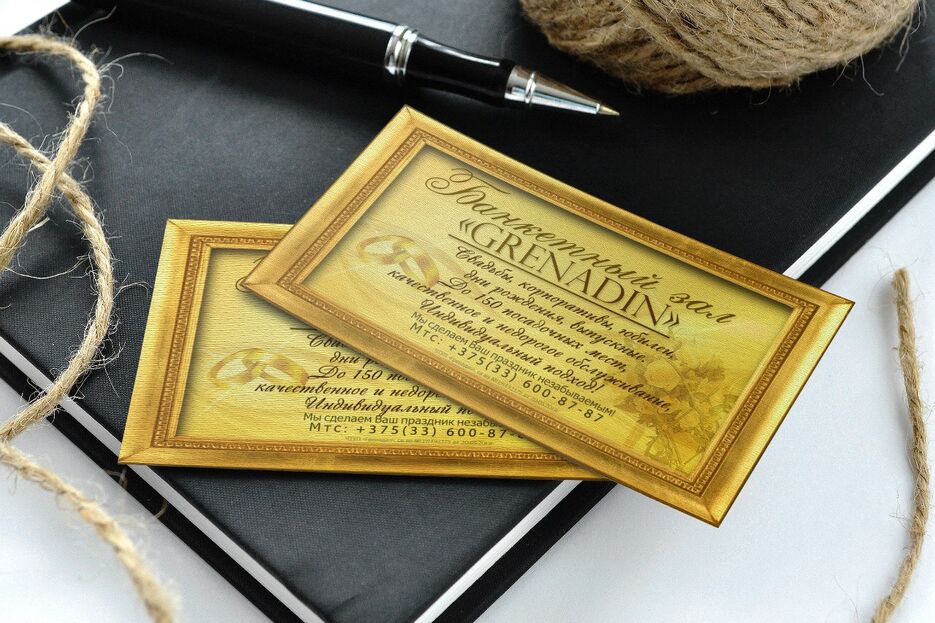 Банкетный зал
«GRENADIN»
Свадьбы, корпоративы, юбилеи,
дни рождения, выпускные.
До 150 посадочных мест,
качественное и недорогое обслуживание,
Индивидуальный подход!
Мы сделаем Ваш праздник незабываемым!
Мтс: +375(33) 600-87-87
Свад
дни ро
До 150 по
качественное и недор
Индивидуальный по
Мы сделаем Ваш праздник незабыв
Мтс: +375(33) 600-87-8